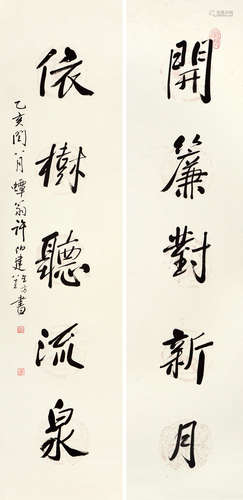 開簾對新月
依樹聽流泉
乙亥閏八月蟫翁許伯建書